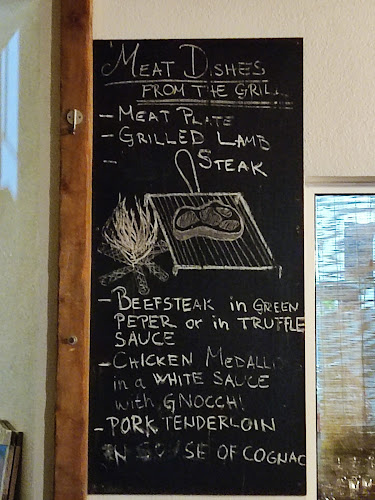 MEAT DISHES
FROM THE GRILL
- MEAT PLATE
- GRILLED LAMB
- STEAK
- BEEFSTEAK in GREEN
PEPER or in TRUFFLE
SAUCE
- CHICKEN MEDALLI
in a WHITE SAUCE
with GNOCCHI
- PORK TENDERLOIN
OF COGNAC